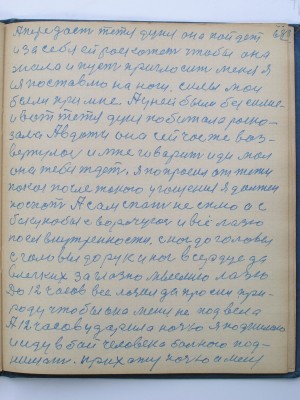 А передаст тети дуни она пойдет
и за себя ей роскожет чтобы она
знала и пуст пригласит меня я
и поставлю на ноги. силы мои
были при мне. А у ней было бессилие
и вот тетя дуня побигала роско-
зала Авдоти она сей час же воз-
вернулас и мне говарит иди мол
она тебя ждет. Я попросил от тети
покоя после такого угощения я должен
поспат. А сам спат не сплю а с
боку на бок ворочуюс и всё лажу
по ей внутренности, с ног до головы
с головы до рук и ног в сердце да
в легких заглазно мысленно лажу
До 12 часов все лазил да просил при-
роду чтобы она меня не подвела
А 12 часов ударила ночю я поднимаюс
и иду в бой человека болного под-
нимат. прихажу ночю и меня